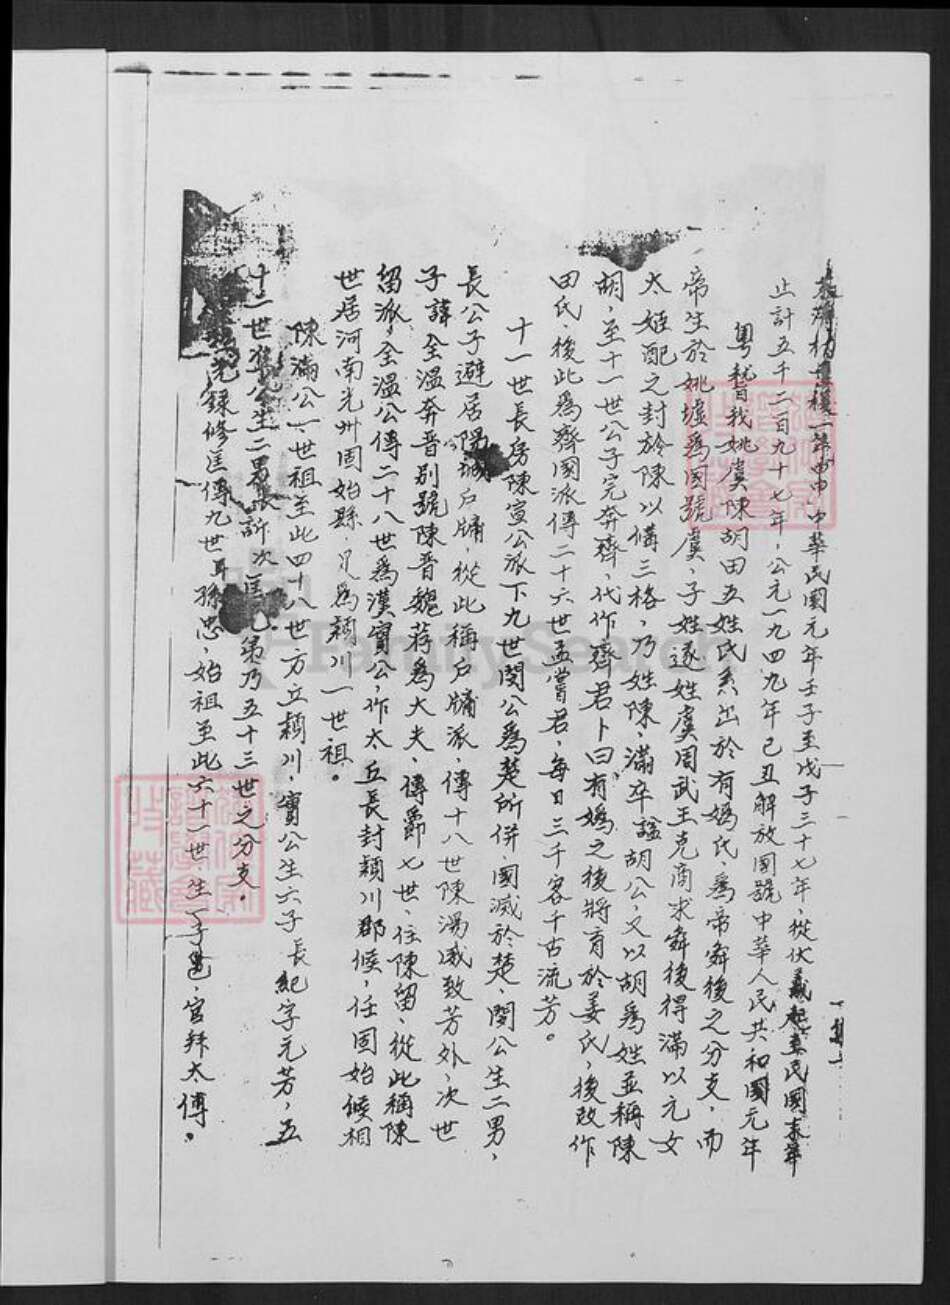 中華民國元年壬子至戊子三十七年，從伏羲起至民國末年
止計五千二百九十七年，公元一九四九年己丑解放國號中華人民共和國元年
粵稽我姚虞陳胡田五姓氏系出於有媯氏，為帝舜後之分支，而
帝生於姚墟為國號虞，子姓遂姓虞周武王克商求舜後得滿以元女
太姬配之封於陳以備三格，乃姓陳，滿卒諡胡公，又以胡為姓並稱陳
胡，至十一世公子完奔齊，代作齊君卜曰有媯之後將育於姜氏，後改作
田氏，後此為齊國派傳二十六世孟嘗君，每日三千客千古流芳。
十一世長房陳宣公派下九世閔公為楚所併，國滅於楚，閔公生二男，
長公子避居陽城戶牖，從此稱戶牖派，傳十八世陳湯威致芳外，次世
子諱全溫奔晋別號陳晋魏荐為大夫，傳爵七世，住陳留，從此稱陳
留派，全溫公傳二十八世為漢實公，作太丘長封穎川郡候，任固始候相
世居河南光州固始縣，是為穎川一世祖。
陳滿公一世祖至此四十八世，方立穎川，實公生六子長紀字元芳，五
十二世準公生二男長訢次匡，第乃五十三世之分支。
錄修匡傳九世耳孫忠，始祖至此六十一世，生一子邕，官拜太傅。
FamilySearch